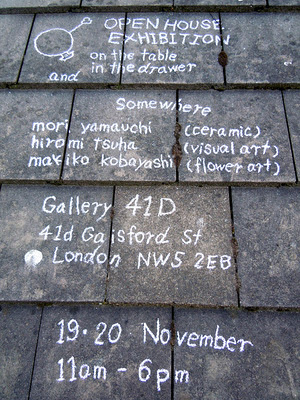 OPEN HOUSE
EXHIBITION
on the table
in the drawer
and
Somewhere
mori yamauchi (ceramic)
hiromi tsuha (visual art)
makiko kobayashi (flower art)
Gallery 41D
41d Gaisford St
London NW5 2EB
19·20 November
11am - 6pm